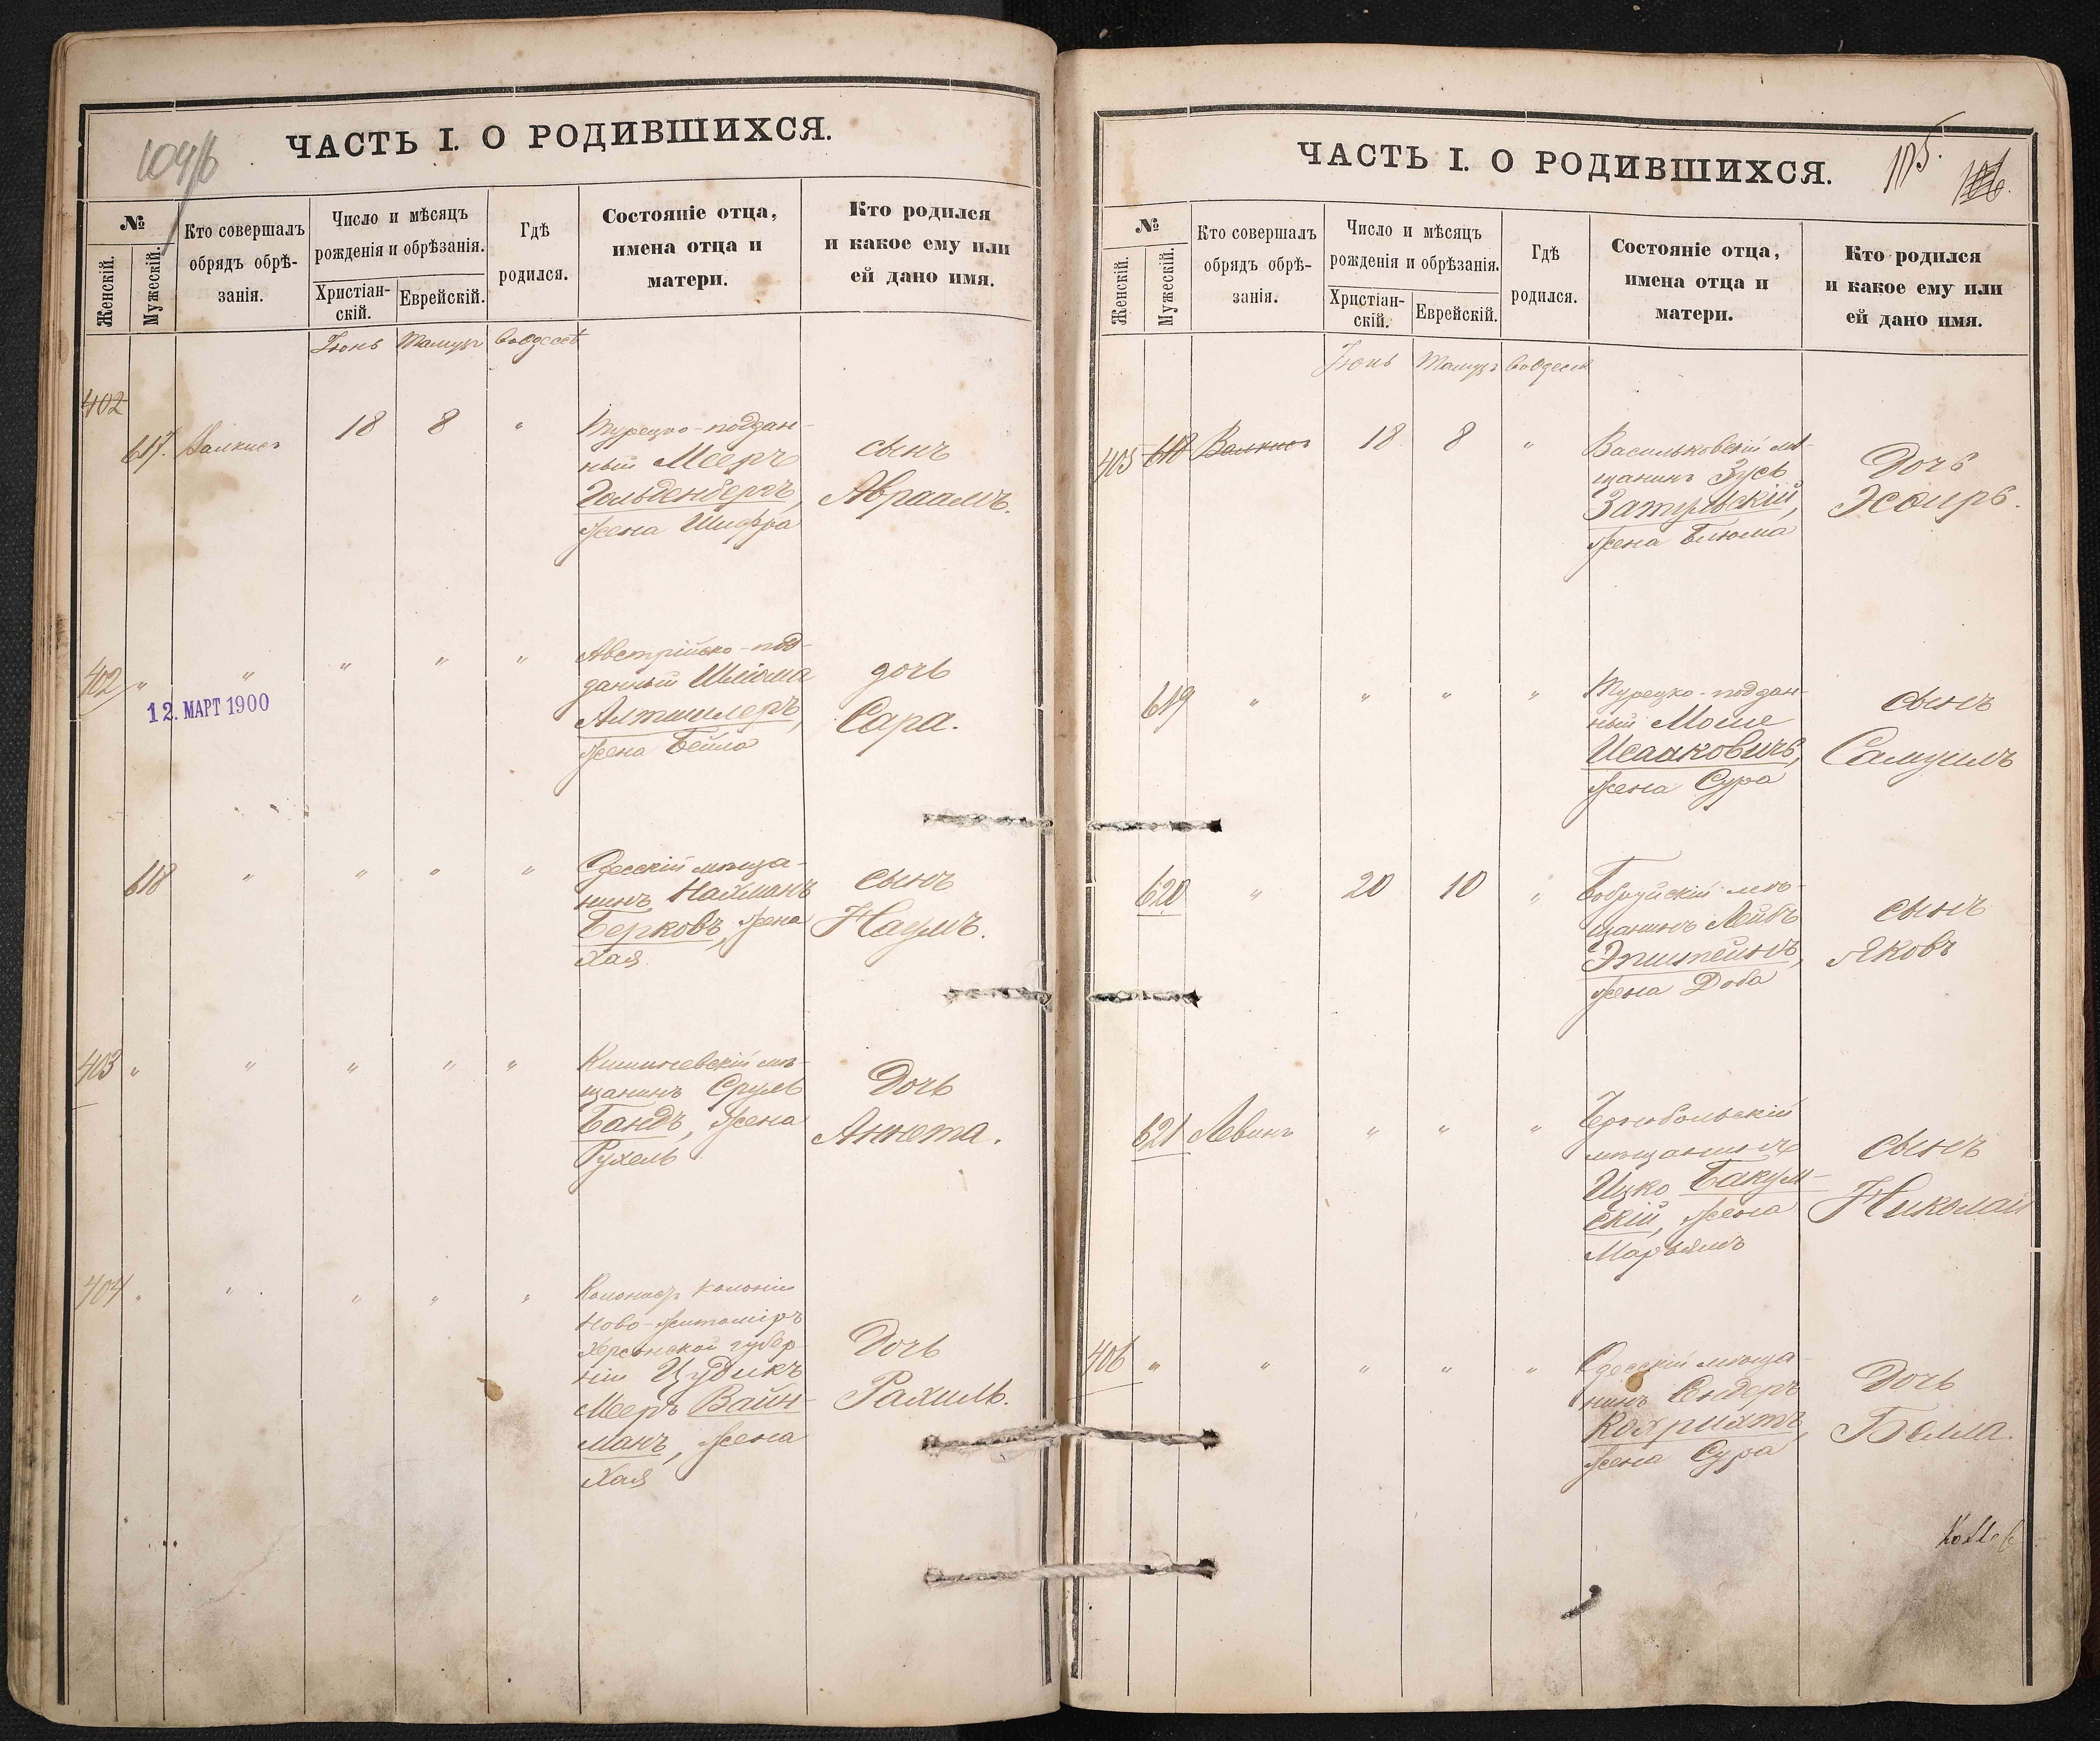 104/б
ЧАСТЬ I. О РОДИВШИХСЯ.
№
Женскій.
Мужескій.
Кто совершалъ
обрядъ обрѣ-
занія.
Число и мѣсяцъ
рожденія и обрѣзанія.
Христіан-
скій.
Еврейскій.
Гдѣ
родился.
Состояніе отца,
имена отца и
матери.
Кто родился
и какое ему или
ей дано имя.
Іюнь Тамузъ
402
617. 18 8 "
Турецко-поддан-
ный Мееръ
Гольденбергъ,
жена Шифра
сынъ
Авраамъ.
402 " " " " "
12. МАРТ 1900
Австрійско-под-
данный Шліома
Альтшлеръ,
жена Бейла
дочь
Сара.
618 " " " "
Одесскій мѣща-
нинъ Нахманъ
Берковъ, жена
Хая
сынъ
Наумъ.
403 " " " " "
Кишиневскій мѣ-
щанинъ Сруль
Бандъ, жена
Рухель
Дочь
Аннета.
404 " " " " "
Колонистъ колоніи
Ново-Житоміръ
Херсонской губер-
ніи Цудикъ
Мееръ Вайн-
манъ, жена
Хая
Дочь
Рахиль.
ЧАСТЬ I. О РОДИВШИХСЯ.
105.
106.
№
Женскій.
Мужескій.
Кто совершалъ
обрядъ обрѣ-
занія.
Число и мѣсяцъ
рожденія и обрѣзанія.
Христіан-
скій.
Еврейскій.
Гдѣ
родился.
Состояніе отца,
имена отца и
матери.
Кто родился
и какое ему или
ей дано имя.
Іюнь Тамузъ
405 618 18 8 "
Васильковскій мѣ-
щанинъ Зусь
Затульскій,
жена Блюма
Дочь
Эсѳирь.
619 " " " "
Турецко-поддан-
ный Моше
Исааковичъ,
жена Сура
сынъ
Самуилъ
620 " 20 10 "
Бобруйскій мѣ-
щанинъ Лейбъ
Эпштейнъ,
жена Доба
сынъ
Яковъ
621 Левинъ " " "
Чернобольскій
мѣщанинъ
Ицко Бакум-
скій, жена
Марьямъ
сынъ
Николай
406 " " " " "
Одесскій мѣща-
нинъ Сендеръ
жена Сура
Дочь
Белла.